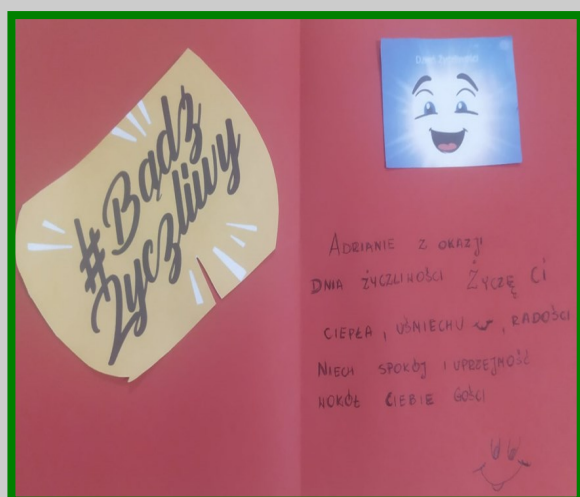 #Bądź
Życzliwy
Dzień Życzliwości
ADRIANIE Z OKAZJI
DNIA ŻYCZLIWOŚCI ŻYCZĘ CI
CIEPŁA, UŚMIECHU, RADOŚCI
NIECH SPOKÓJ I UPRZEJMOŚĆ
WOKÓŁ CIEBIE GOŚCI